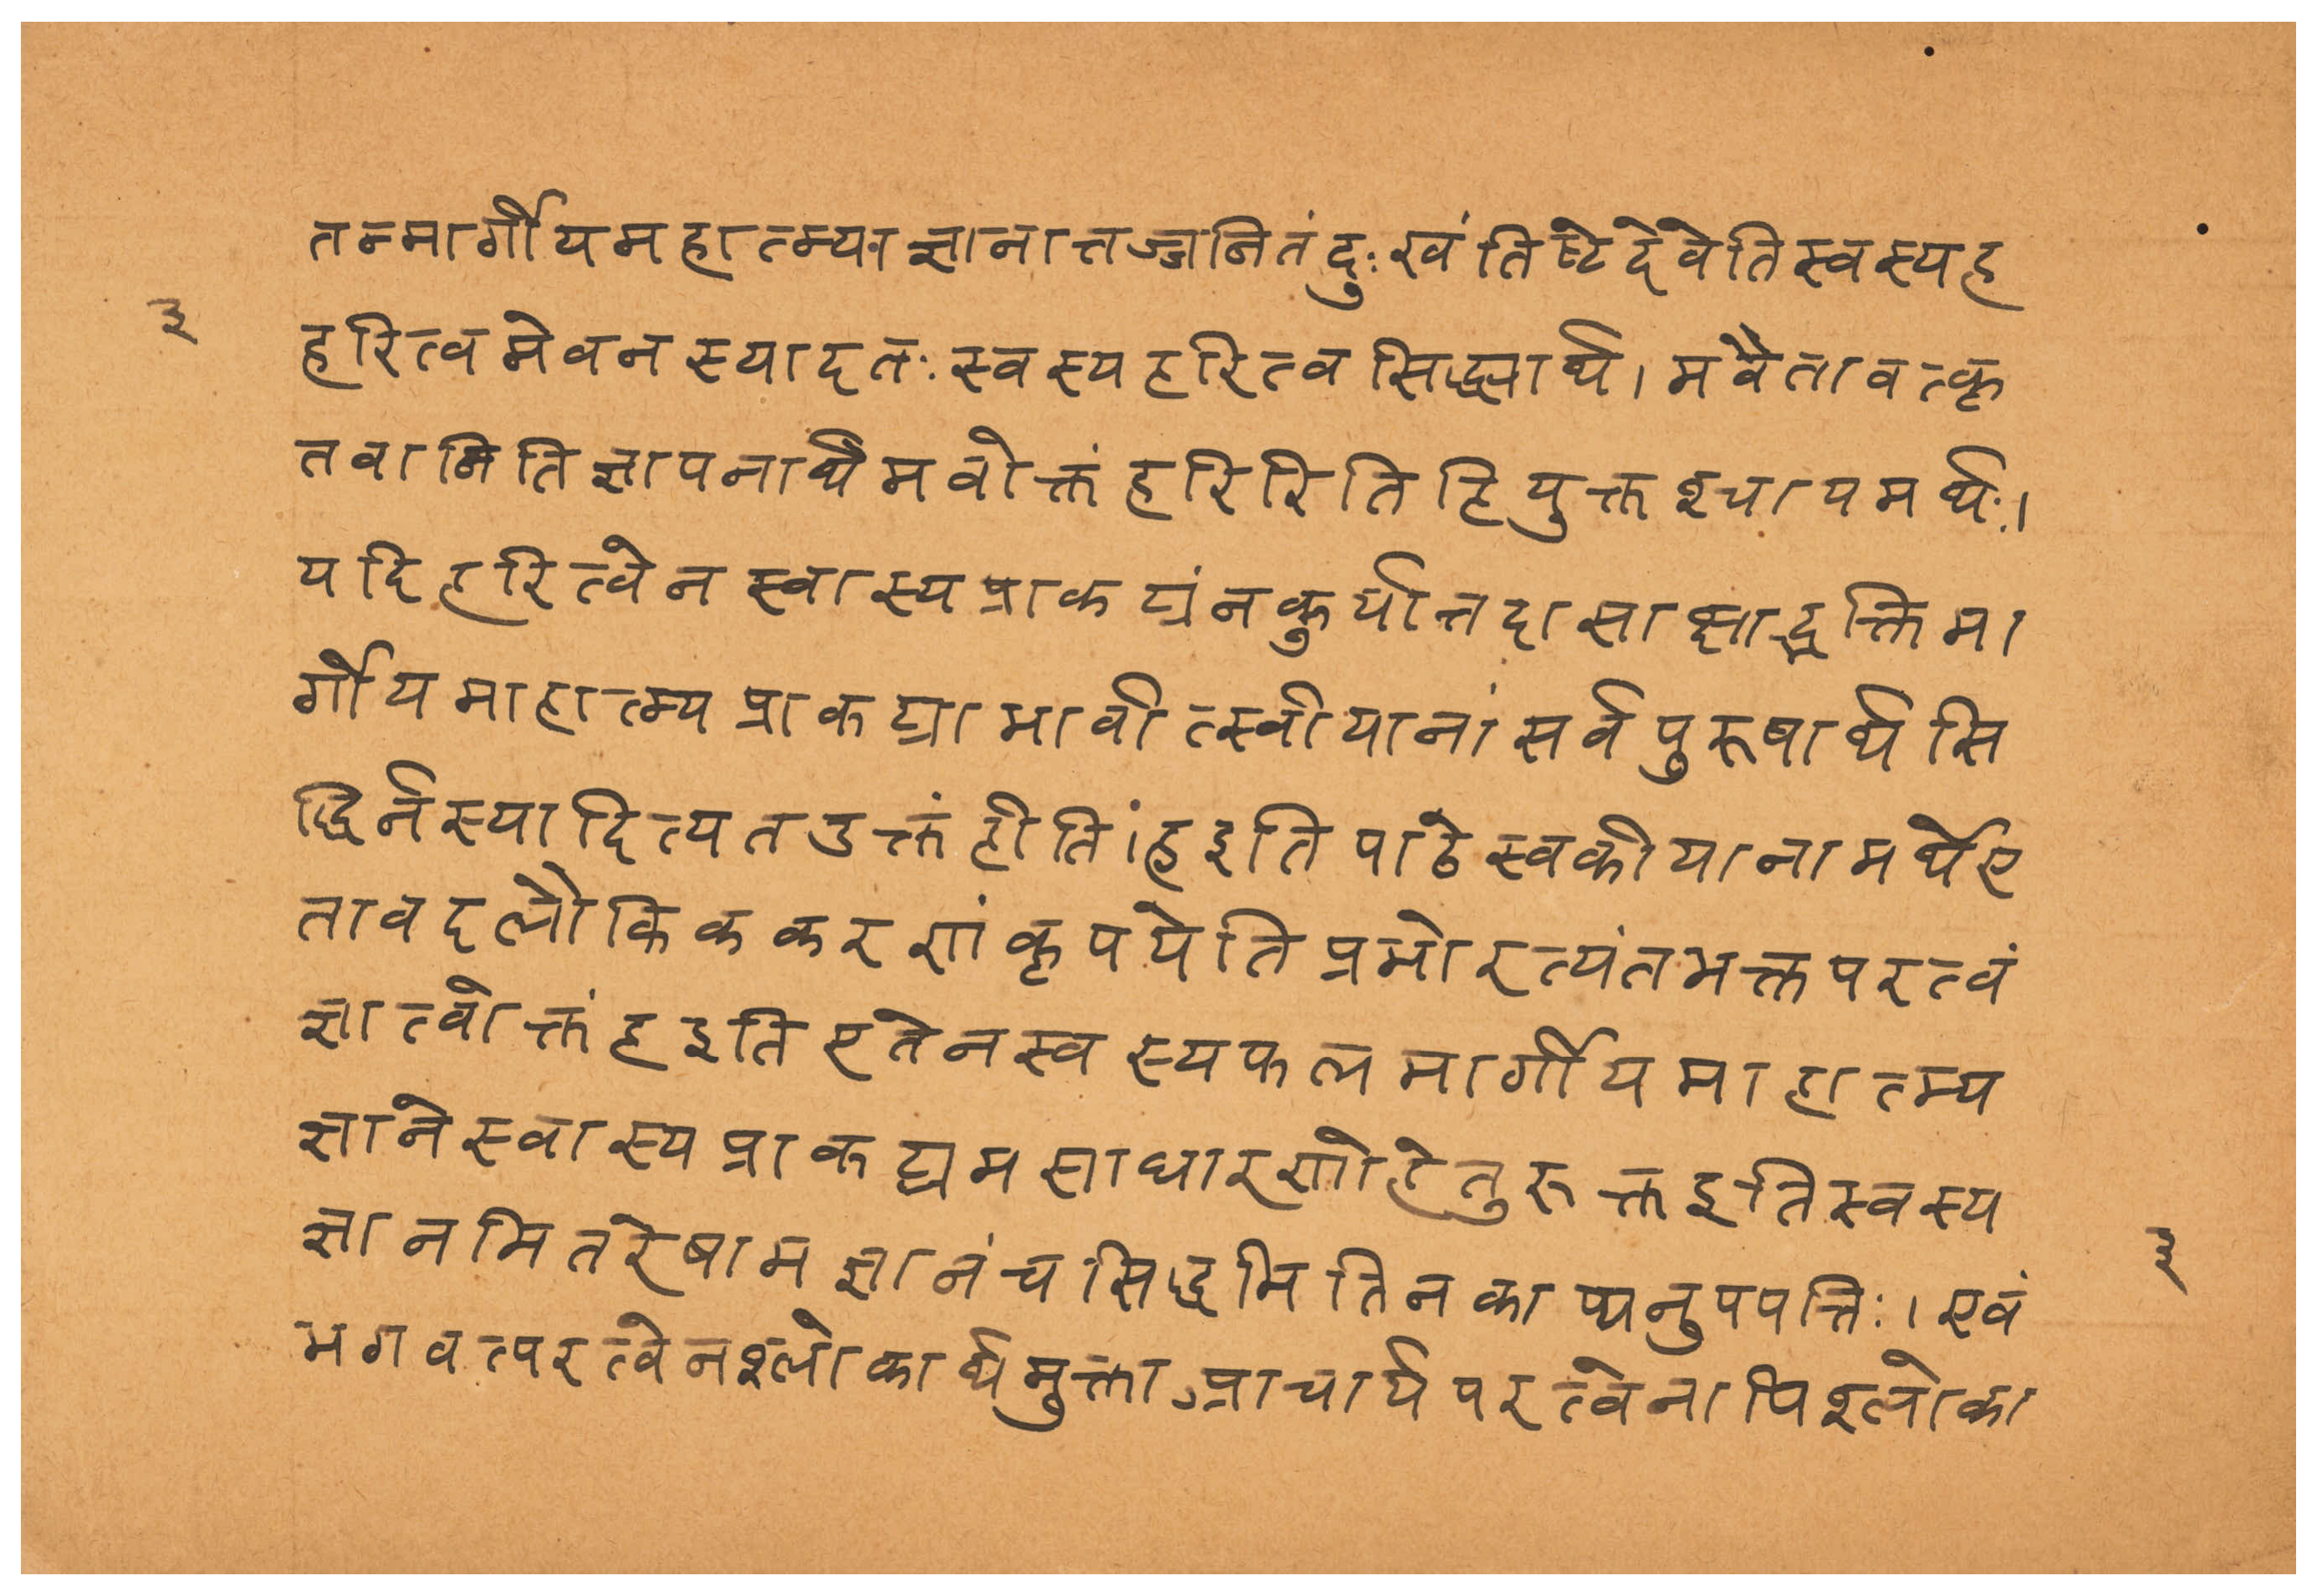 तन्मार्गीयमहात्म्याज्ञानात्तज्जनितंदुःखंतिष्टेदेवेतिस्वस्यह
३
हरित्वमेवनस्यादतःस्वस्यहरित्वसिद्ध्यार्थ।मवैतावत्कृ
तवानितिज्ञापनार्थमवोक्तंहरिरितिहियुक्तश्चायमर्थः।
यदिहरित्वेनस्वास्यप्राकट्यंनकुर्यात्तदासाक्षाद्भक्तिमा
र्गीयमाहात्म्यप्राकट्याभावीत्स्वीयानांसर्वपुरूषार्थसि
द्धिर्नस्यादित्यतउक्तंहीतिं।हइतिपाठेस्वकीयानामर्थेए
तावदलौकिककरणंकृपयेतिप्रभोरत्यंतभक्तपरत्वं
ज्ञात्वोक्तंहइतिएतेनस्वस्यफलमार्गीयमाहात्म्य
ज्ञानेस्वास्यप्राकट्यमसाधारणोहेतुरुक्तइतिस्वस्य
ज्ञानमितरेषामज्ञानंचसिद्धमितिनकाप्यनुपपत्तिः।एवं
३
भगवत्परत्वेनश्लोकार्थमुक्ताप्राचार्यपरत्वेनापिश्लोका